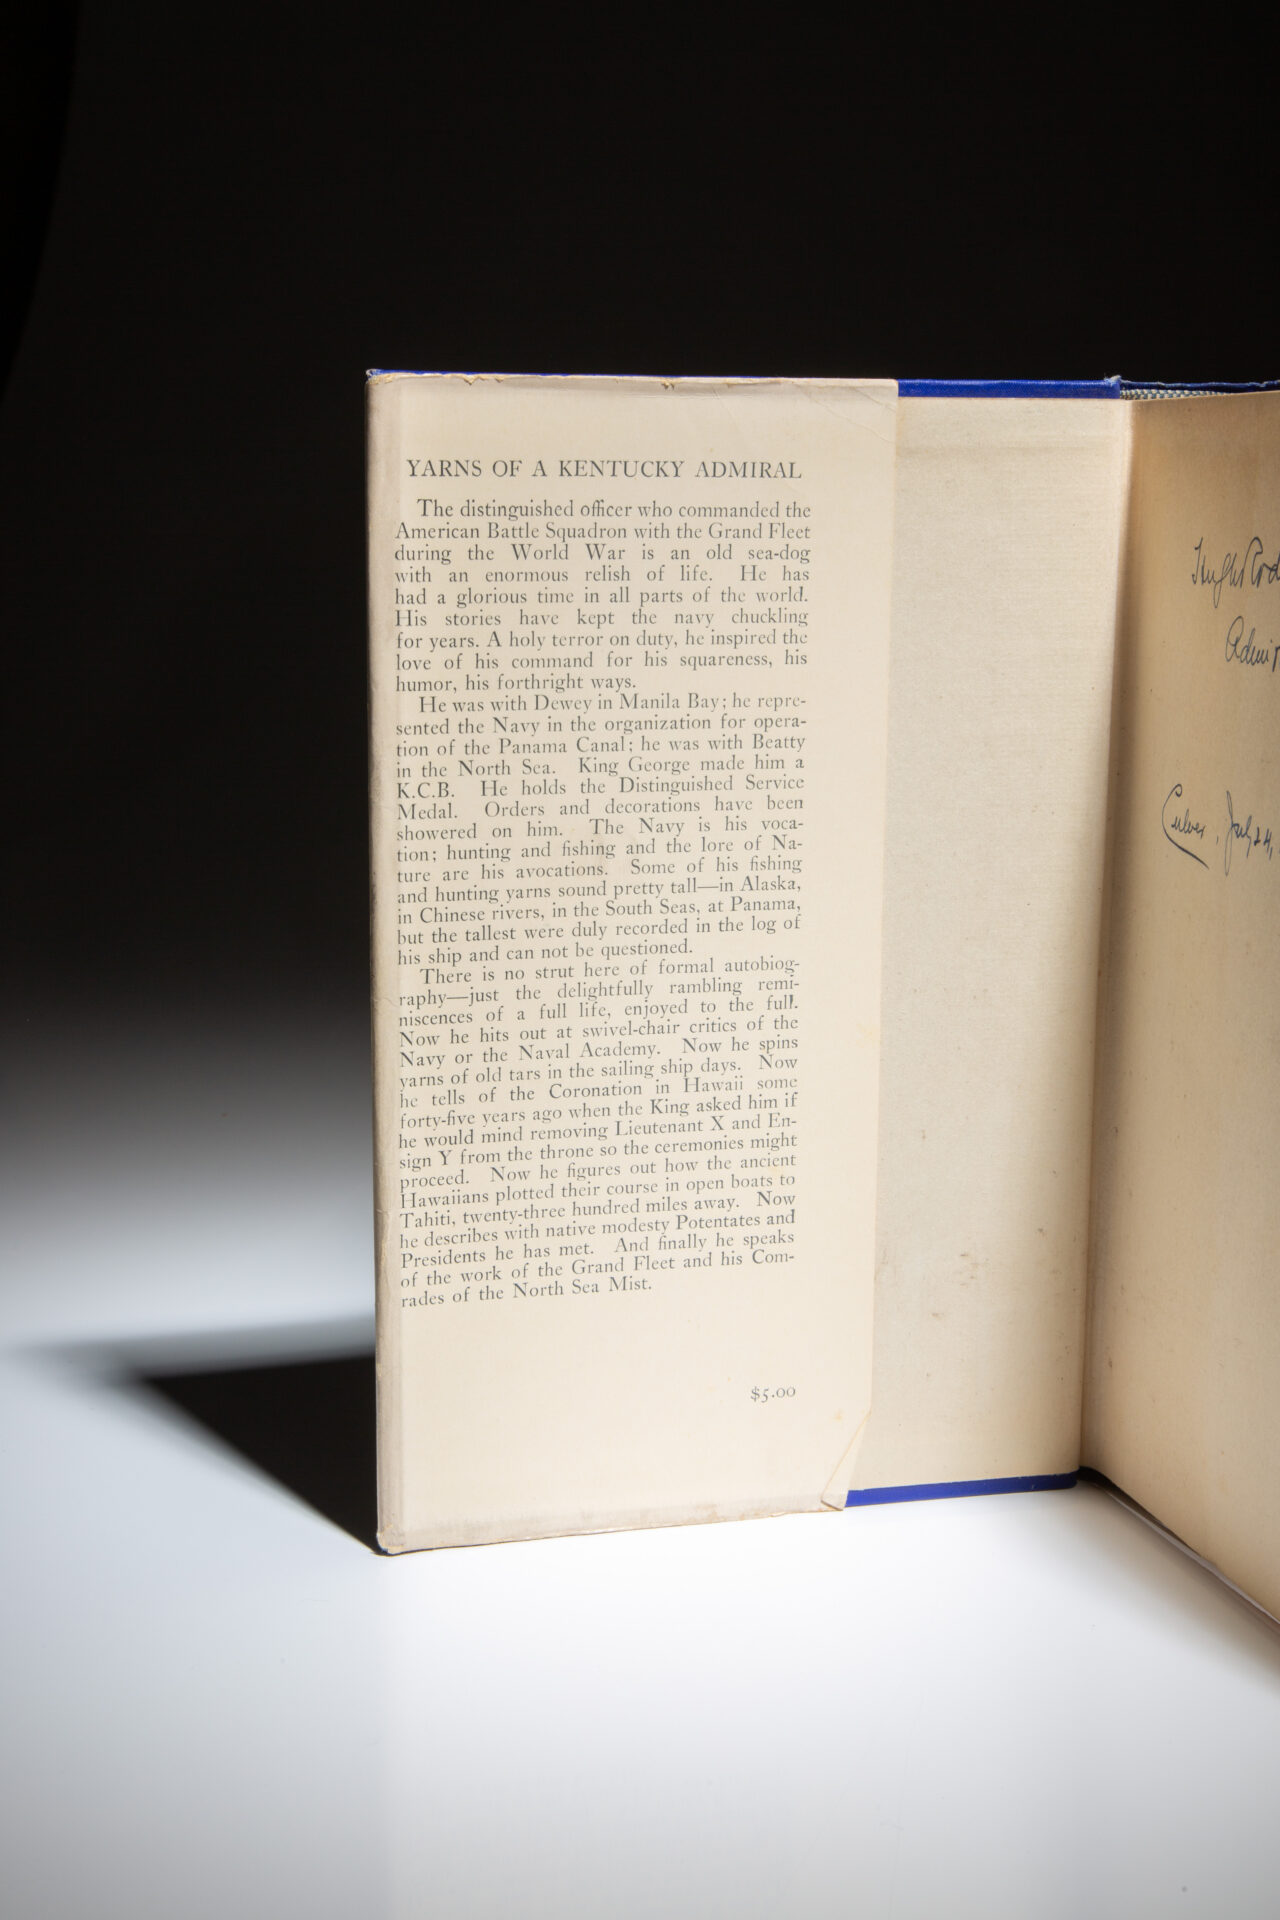 YARNS OF A KENTUCKY ADMIRAL
The distinguished officer who commanded the
American Battle Squadron with the Grand Fleet
during the World War is an old sea-dog
with an enormous relish of life. He has
had a glorious time in all parts of the world.
His stories have kept the navy chuckling
for years. A holy terror on duty, he inspired the
love of his command for his squareness, his
humor, his forthright ways.
He was with Dewey in Manila Bay; he repre-
sented the Navy in the organization for opera-
tion of the Panama Canal; he was with Beatty
in the North Sea. King George made him a
K.C.B. He holds the Distinguished Service
Medal. Orders and decorations have been
showered on him. The Navy is his voca-
tion; hunting and fishing and the lore of Na-
ture are his avocations. Some of his fishing
and hunting yarns sound pretty tall—in Alaska,
in Chinese rivers, in the South Seas, at Panama,
but the tallest were duly recorded in the log of
his ship and can not be questioned.
There is no strut here of formal autobiog-
raphy—just the delightfully rambling remi-
niscences of a full life, enjoyed to the full.
Now he hits out at swivel-chair critics of the
Navy or the Naval Academy. Now he spins
yarns of old tars in the sailing ship days. Now
he tells of the Coronation in Hawaii some
forty-five years ago when the King asked him if
he would mind removing Lieutenant X and En-
sign Y from the throne so the ceremonies might
proceed. Now he figures out how the ancient
Hawaiians plotted their course in open boats to
Tahiti, twenty-three hundred miles away. Now
he describes with native modesty Potentates and
Presidents he has met. And finally he speaks
of the work of the Grand Fleet and his Com-
rades of the North Sea Mist.
$5.00
Hugh Rod
Admir
Culver, July 24,